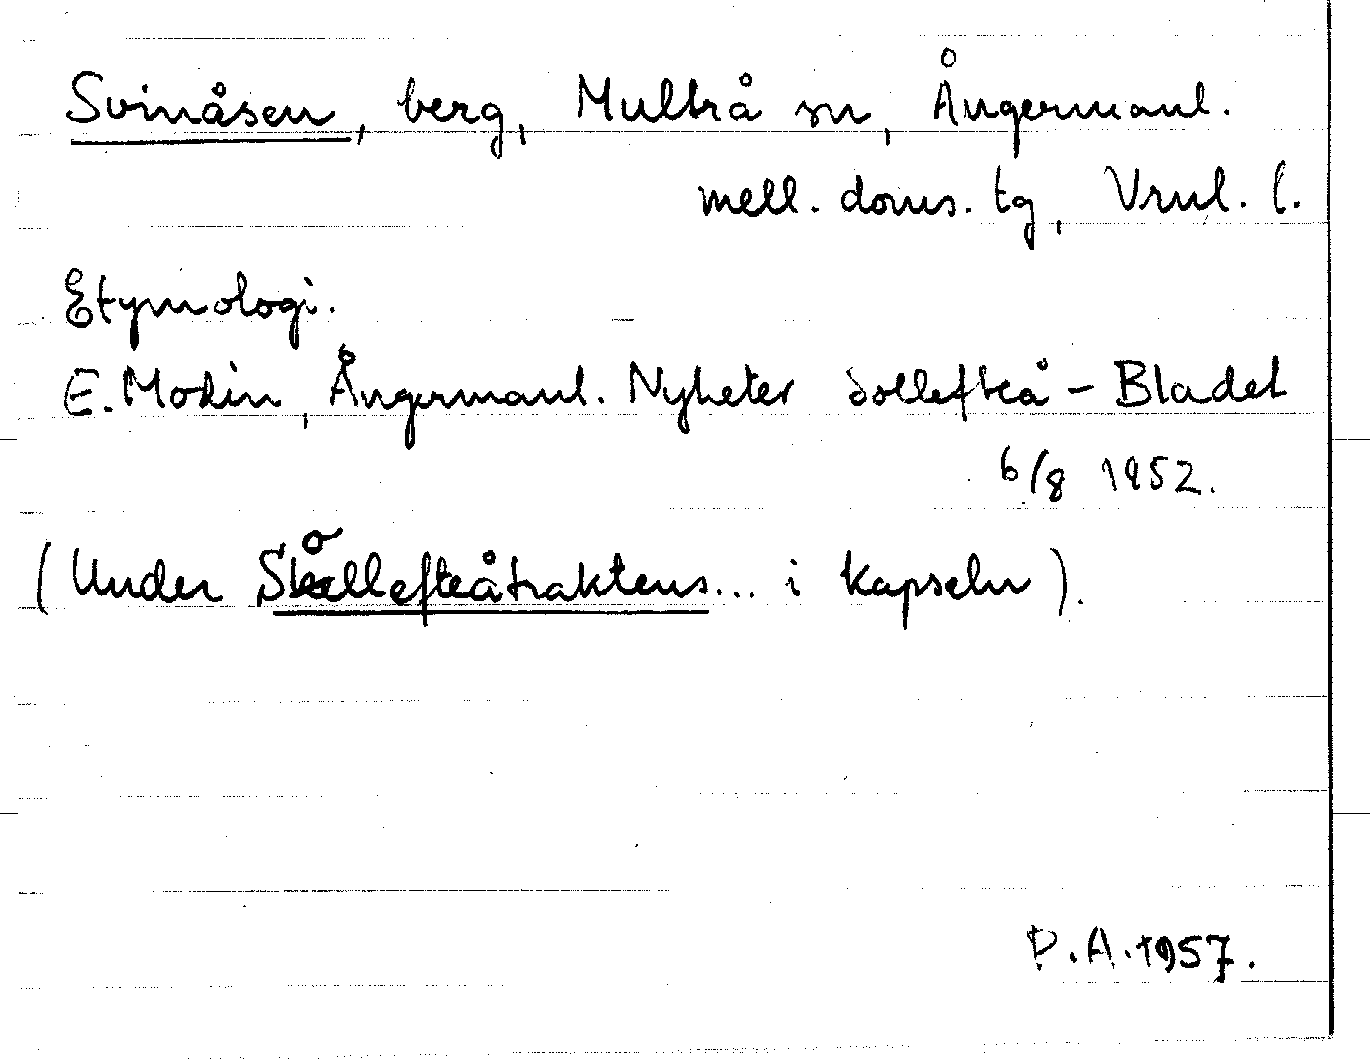 Svinåsen, berg, Multrå sn, Ångermanl.
mell. doms. tg, Vrnl. l.
Etymologi.
E. Modin, Ångermanl. Nyheter Sollefteå-Bladet
6/8 1952.
(Under Sollefteåtraktens... i kapseln).
P.A. 1957.